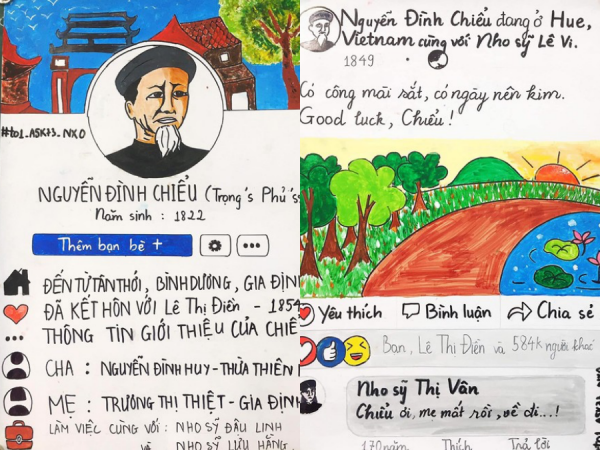 #to1_ASK73_NXO
NGUYỄN ĐÌNH CHIỂU (Trọng's Phủ's
Năm sinh : 1822
Thêm bạn bè +
ĐẾN TỪ TÂN THỚI, BÌNH DƯƠNG, GIA ĐỊN
ĐÃ KẾT HÔN VỚI Lê Thị Điền - 1854
THÔNG TIN GIỚI THIỆU CỦA CHIỂ
CHA : NGUYỄN ĐÌNH HUY - THỪA THIÊN
MẸ : TRƯƠNG THỊ THIỆT - GIA ĐỊN
LÀM VIỆC CÙNG VỚI : NHO SỸ ĐẬU LINH
và NHO SỸ LƯU HẰNG
Nguyễn Đình Chiểu đang ở Hue,
Vietnam cùng với Nho sỹ Lê Vi.
1849
Có công mài sắt, có ngày nên kim.
Good luck, Chiểu !
Yêu thích Bình luận Chia sẻ
Bạn, Lê Thị Điền và 584k người khác
Nho sỹ Thị Vân
Chiểu ơi, mẹ mất rồi, về đi...!
170 năm Thích Trả lời